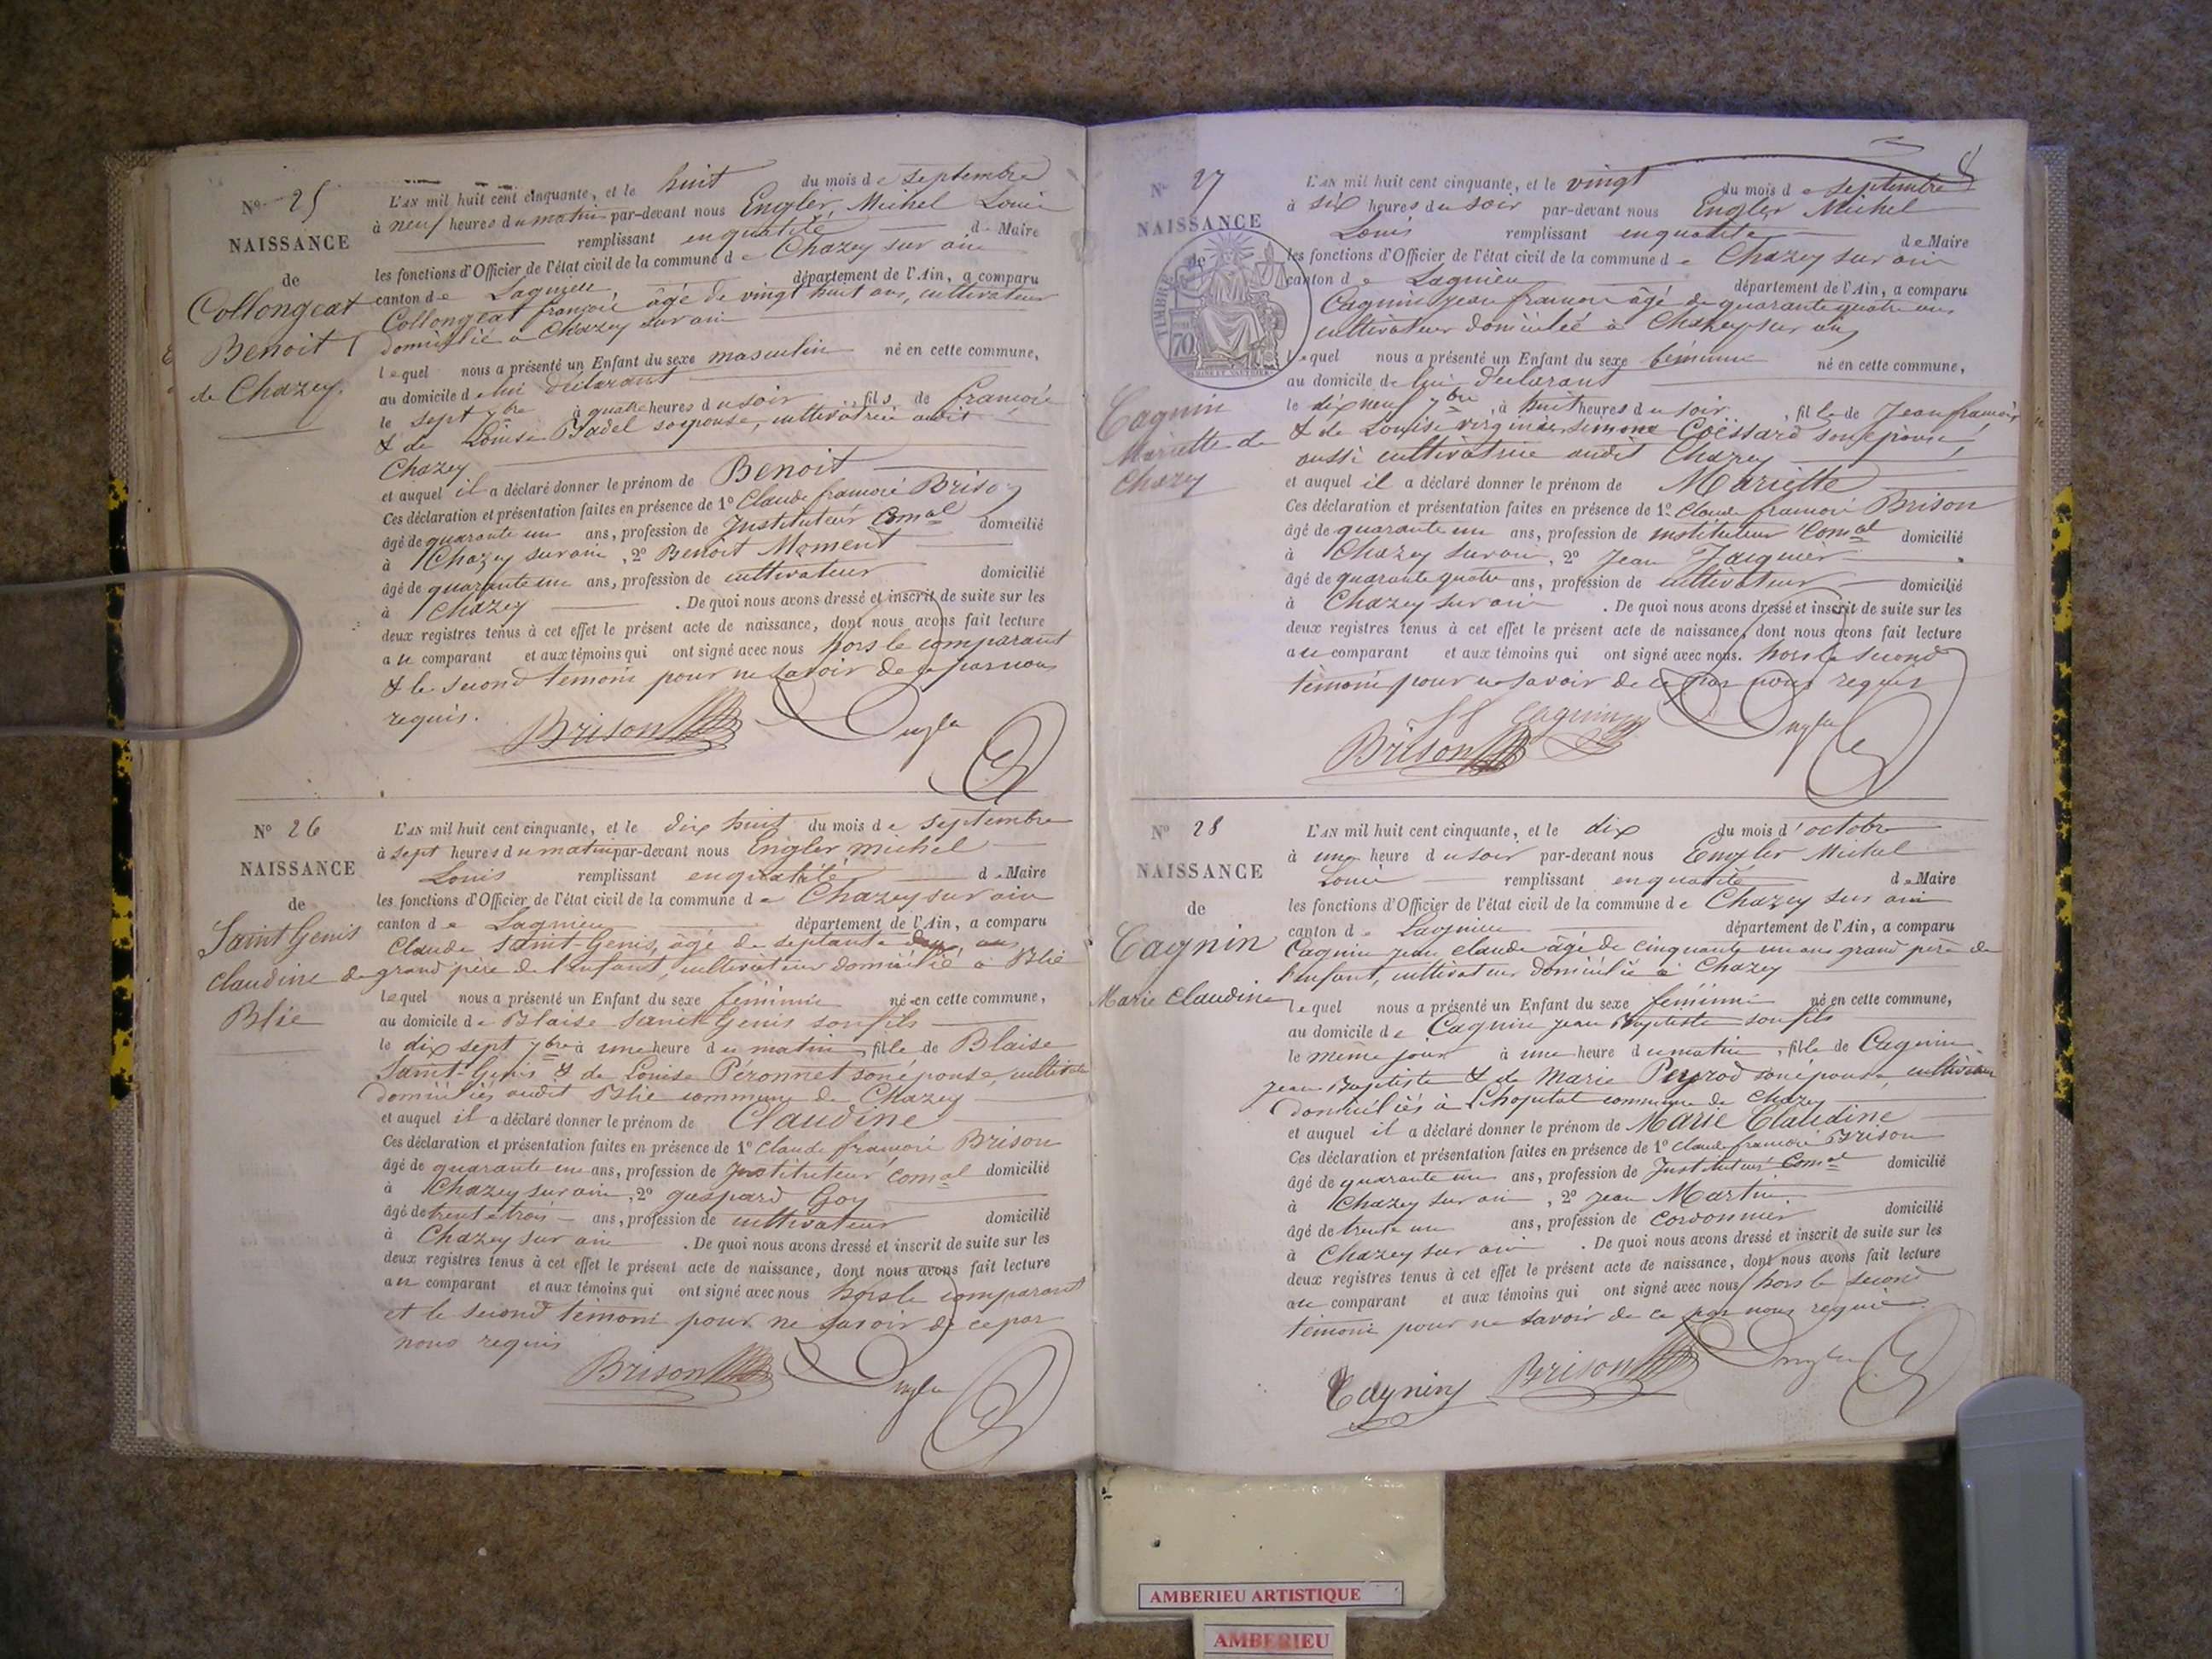 N° 25
NAISSANCE
de
Collongeat
Benoit
de Chazey.
L'AN mil huit cent cinquante, et le huit du mois de septembre
à neuf heures du matin par-devant nous Engler Michel Louis
remplissant en qualité de Maire
les fonctions d'Officier de l'état civil de la commune de Chazey sur ain
canton de Lagnieu département de l'Ain, a comparu
Collongeat françois âgé de vingt huit ans, cultivateur
domicilié à Chazey sur ain
lequel nous a présenté un Enfant du sexe masculin né en cette commune,
au domicile de lui déclarant
le sept 7bre à quatre heures du soir, fils de françois
& de Louise Badel son épouse, cultivatrice audit
Chazey
et auquel il a déclaré donner le prénom de Benoit
Ces déclaration et présentation faites en présence de 1° Claude françois Brison
âgé de quarante un ans, profession de Instituteur Comal domicilié
à Chazey sur ain, 2° Benoit Moment
âgé de quarante un ans, profession de cultivateur domicilié
à Chazey . De quoi nous avons dressé et inscrit de suite sur les
deux registres tenus à cet effet le présent acte de naissance, dont nous avons fait lecture
au comparant et aux témoins qui ont signé avec nous hors le comparant
& le second témoin pour ne savoir de ce par nous
requis.
Brison Engler
N° 26
NAISSANCE
de
Saint Genis
Claudine de
Blie
L'AN mil huit cent cinquante, et le dix huit du mois de septembre
à sept heures du matin par-devant nous Engler Michel
Louis remplissant en qualité de Maire
les fonctions d'Officier de l'état civil de la commune de Chazey sur ain
canton de Lagnieu département de l'Ain, a comparu
Claude Saint-Genis, âgé de septante ans
grand père de l'enfant, cultivateur domicilié à Blie
lequel nous a présenté un Enfant du sexe féminin né en cette commune,
au domicile de Blaise Saint Genis son fils
le dix sept 7bre à une heure du matin, fille de Blaise
Saint-Genis & de Louise Peronnet son épouse, cultiv
domiciliés audit Blie commune de Chazey
et auquel il a déclaré donner le prénom de Claudine
Ces déclaration et présentation faites en présence de 1° Claude françois Brison
âgé de quarante un ans, profession de Instituteur Comal domicilié
à Chazey sur ain, 2° gaspard Goy
âgé de trente trois ans, profession de cultivateur domicilié
à Chazey sur ain . De quoi nous avons dressé et inscrit de suite sur les
deux registres tenus à cet effet le présent acte de naissance, dont nous avons fait lecture
au comparant et aux témoins qui ont signé avec nous hors le comparant
et le second témoin pour ne savoir de ce par
nous requis
Brison Engler
N° 27
NAISSANCE
de
TIMBRE
70
Cagnin
Mariette de
Chazey
L'AN mil huit cent cinquante, et le vingt du mois de septembre
à six heures du soir par-devant nous Engler Michel
Louis remplissant en qualité de Maire
les fonctions d'Officier de l'état civil de la commune de Chazey sur ain
canton de Lagnieu département de l'Ain, a comparu
Cagnin jean francois âgé de quarante quatre ans
cultivateur domicilié à Chazey sur ain
lequel nous a présenté un Enfant du sexe féminin né en cette commune,
au domicile de lui déclarant
le dix neuf 7bre, à huit heures du soir, fille de Jean francois
& de Louise virginie simone Coëssard son épouse,
aussi cultivatrice audit Chazey
et auquel il a déclaré donner le prénom de Mariette
Ces déclaration et présentation faites en présence de 1° Claude francois Brison
âgé de quarante un ans, profession de instituteur Comal domicilié
à Chazey sur ain, 2° Jean Jacquier
âgé de quarante quatre ans, profession de cultivateur domicilié
à Chazey sur ain . De quoi nous avons dressé et inscrit de suite sur les
deux registres tenus à cet effet le présent acte de naissance, dont nous avons fait lecture
au comparant et aux témoins qui ont signé avec nous. hors le second
témoin pour ne savoir de ce par nous requis
Brison Cagnin Engler
N° 28
NAISSANCE
de
Cagnin
Marie Claudine
L'AN mil huit cent cinquante, et le dix du mois d'octobre
à une heure du soir par-devant nous Engler Michel
Louis remplissant en qualité de Maire
les fonctions d'Officier de l'état civil de la commune de Chazey sur ain
canton de Lagnieu département de l'Ain, a comparu
Cagnin jean claude âgé de cinquante un ans grand père de
l'enfant, cultivateur domicilié à Chazey
lequel nous a présenté un Enfant du sexe féminin né en cette commune,
au domicile de Cagnin jean Baptiste son fils
le même jour à une heure du matin, fille de Cagnin
jean Baptiste & de Marie Peyrod son épouse, cultivateurs
domiciliés à L'hopital commune de Chazey
et auquel il a déclaré donner le prénom de Marie Claudine
Ces déclaration et présentation faites en présence de 1° Claude francois Brison
âgé de quarante un ans, profession de Instituteur Comal domicilié
à Chazey sur ain, 2° jean Martin
âgé de trente un ans, profession de cordonnier domicilié
à Chazey sur ain . De quoi nous avons dressé et inscrit de suite sur les
deux registres tenus à cet effet le présent acte de naissance, dont nous avons fait lecture
au comparant et aux témoins qui ont signé avec nous hors le second
témoin pour ne savoir de ce par nous requis.
Cagnin Brison Engler
AMBERIEU ARTISTIQUE
AMBERIEU